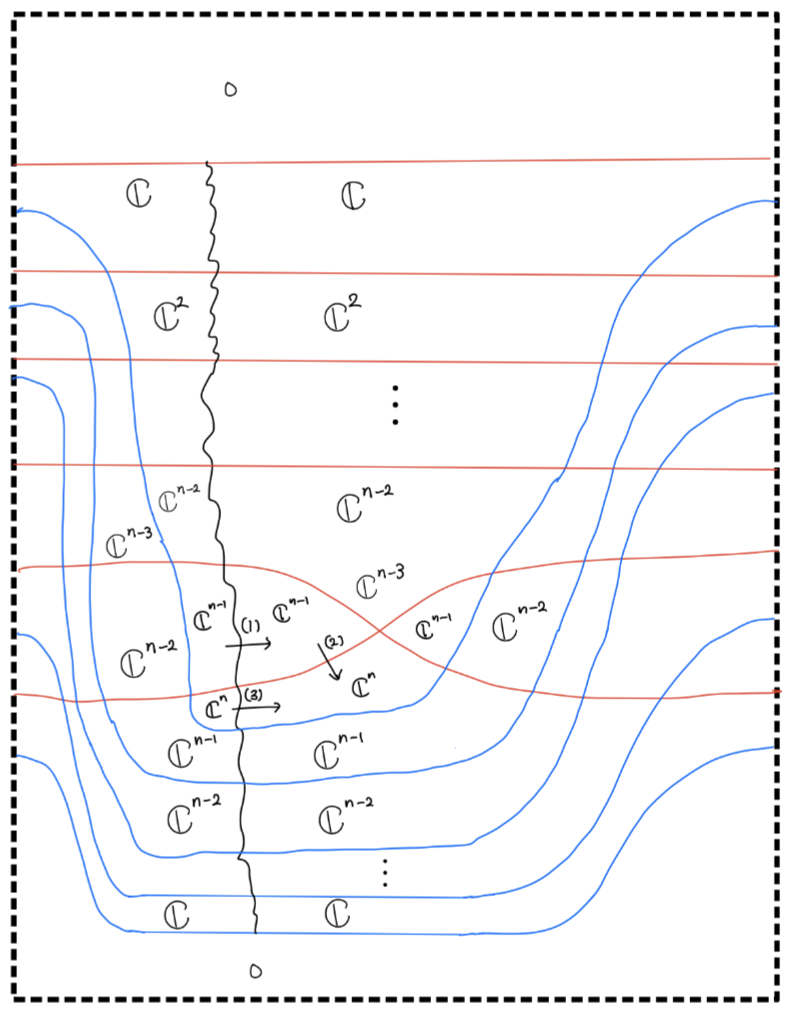 0
ℂ ℂ
ℂ² ℂ²
⋮
ℂⁿ⁻² ℂⁿ⁻²
ℂⁿ⁻³ ℂⁿ⁻³
ℂⁿ⁻¹ (1) ℂⁿ⁻¹ (2) ℂⁿ⁻¹ ℂⁿ⁻²
ℂⁿ⁻²
ℂⁿ (3) ℂⁿ
ℂⁿ⁻¹ ℂⁿ⁻¹
ℂⁿ⁻² ℂⁿ⁻²
⋮
ℂ ℂ
0